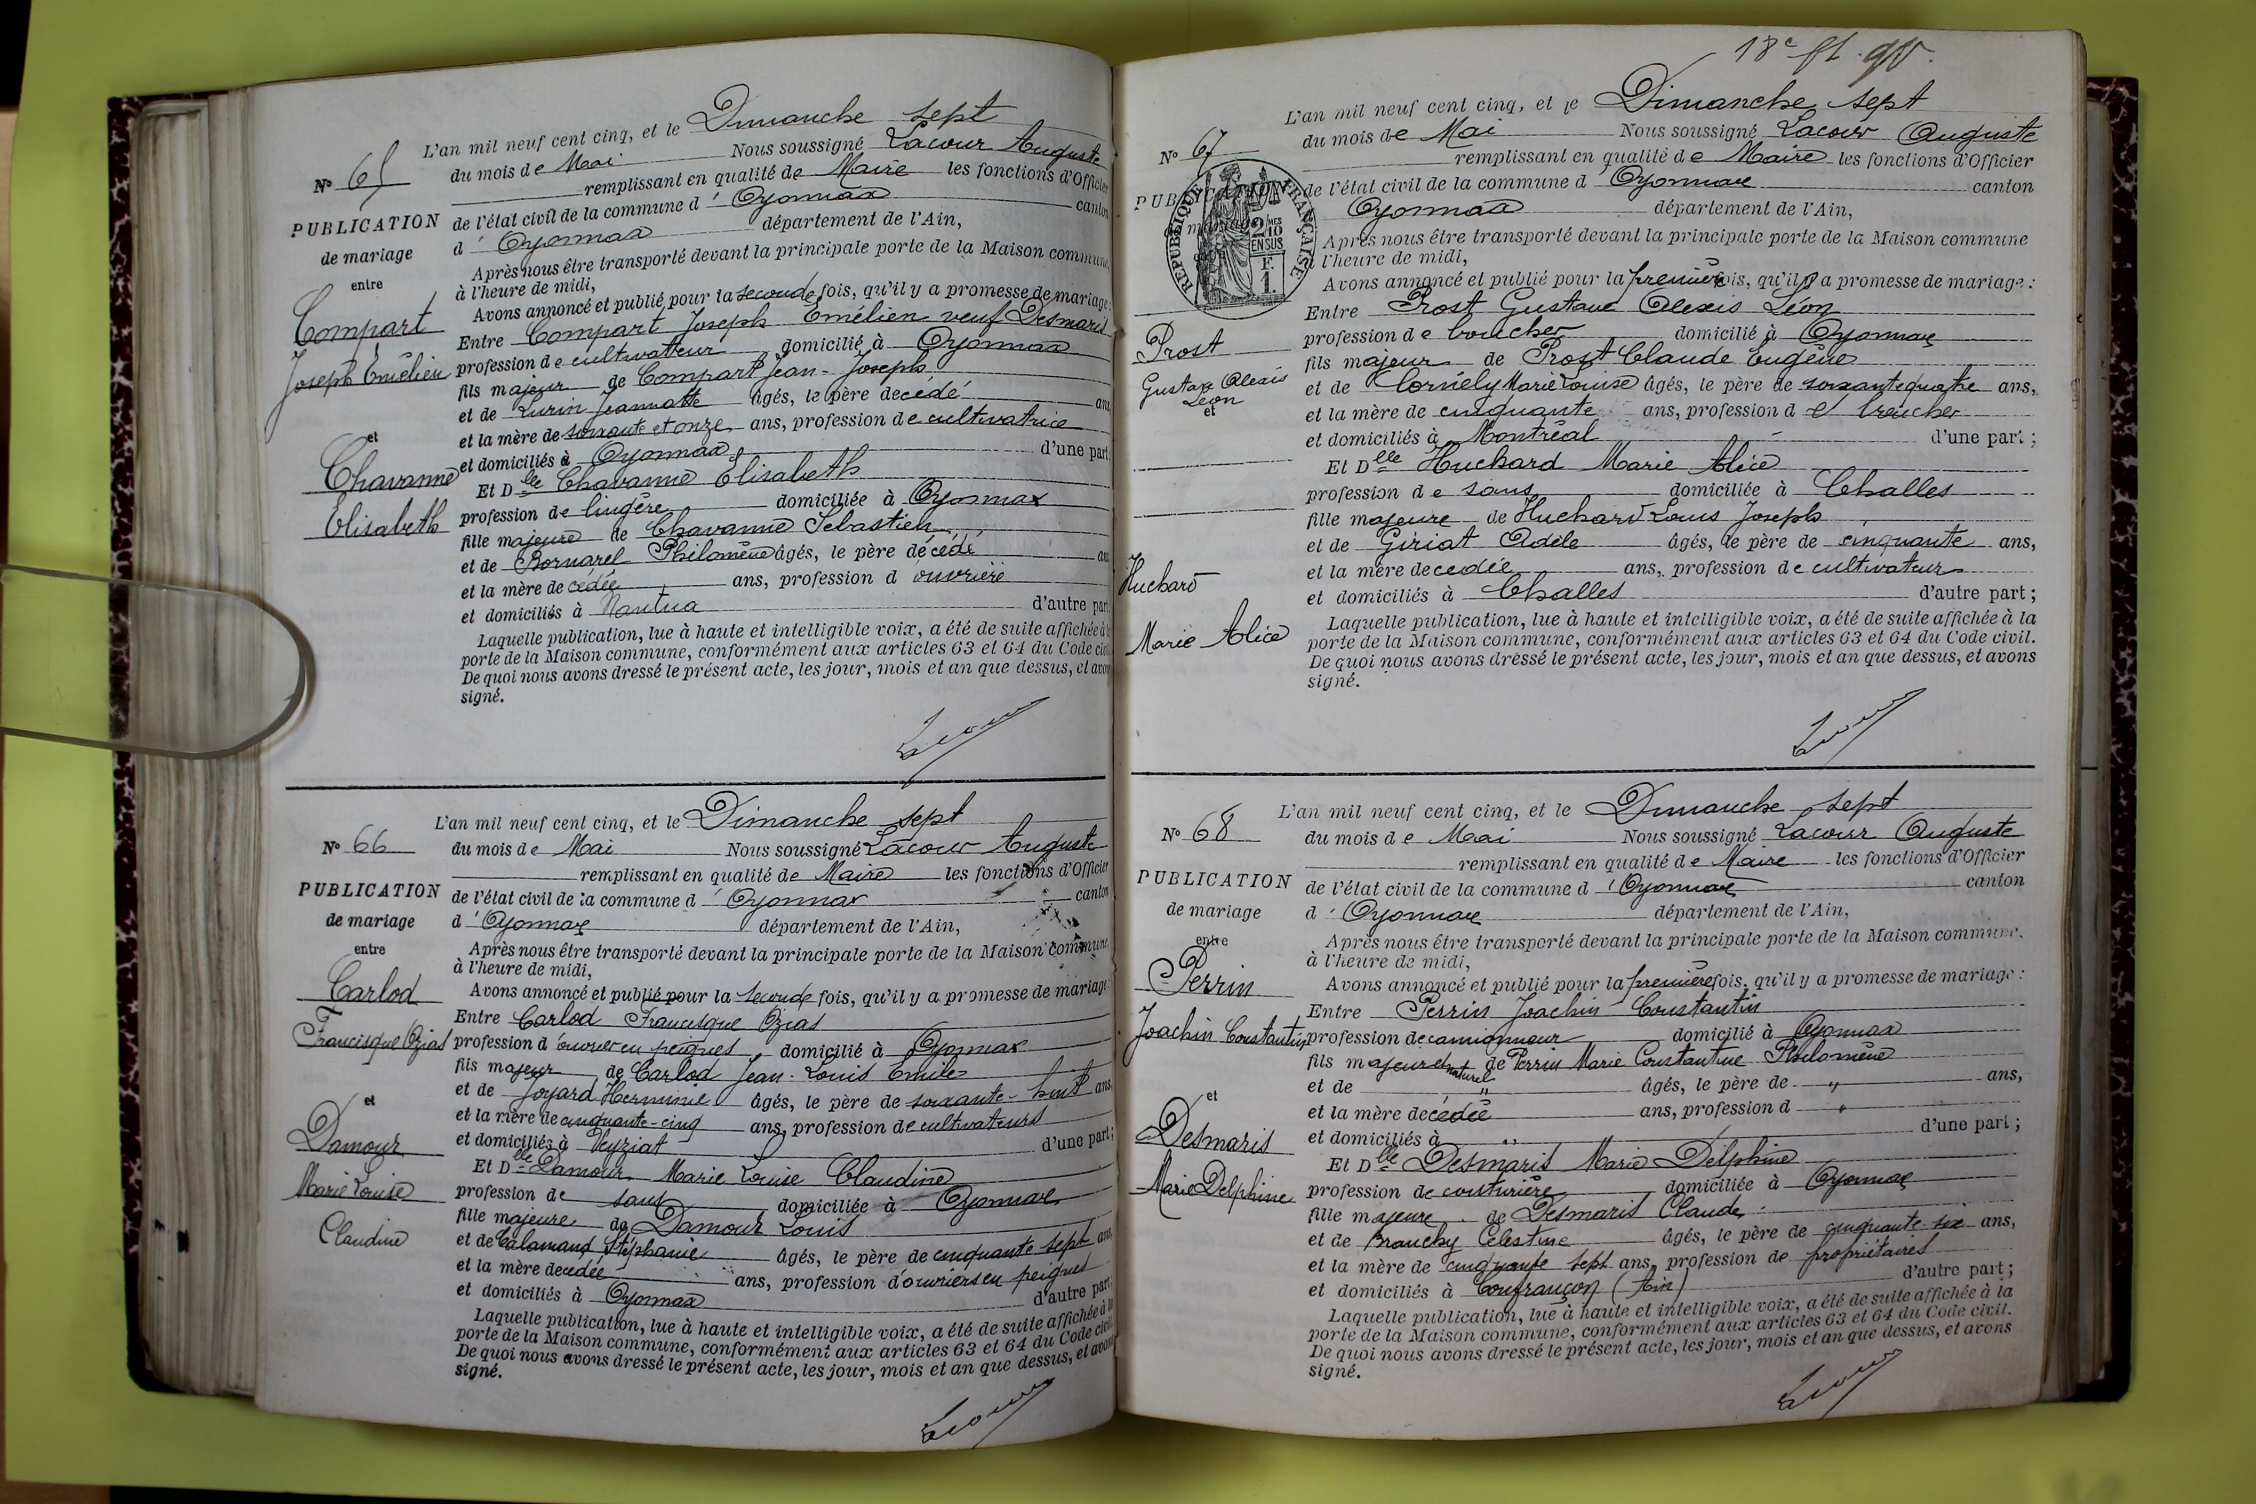 N° 65
PUBLICATION
de mariage
entre
Compart
Joseph Emélien
et
Chavanne
Elisabeth
L'an mil neuf cent cinq, et le Dimanche sept
du mois de Mai Nous soussigné Lacour Auguste
remplissant en qualité de Maire les fonctions d'Officier
de l'état civil de la commune d' Oyonnax canton
d' Oyonnax département de l'Ain,
Après nous être transporté devant la principale porte de la Maison commune,
à l'heure de midi,
Avons annoncé et publié pour la seconde fois, qu'il y a promesse de mariage :
Entre Compart Joseph Emélien veuf Desmaris
profession de cultivateur domicilié à Oyonnax
fils majeur de Compart Jean-Joseph
et de Lurin Jeannette âgés, le père decédé ans
et la mère de soixante et onze ans, profession de cultivatrice
et domiciliés à Oyonnax d'une part
Et Dlle Chavanne Elisabeth
profession de lingère domiciliée à Oyonnax
fille majeure de Chavanne Sébastien
et de Bornarel Philomène âgés, le père décédé ans
et la mère decédée ans, profession d'ouvrière
et domiciliés à Nantua d'autre part
Laquelle publication, lue à haute et intelligible voix, a été de suite affichée à la
porte de la Maison commune, conformément aux articles 63 et 64 du Code civil
De quoi nous avons dressé le présent acte, les jour, mois et an que dessus, et avons
signé.
Lacour
N° 66
PUBLICATION
de mariage
entre
Carlod
Francisque Ozias
et
Damour
Marie Louise
Claudine
L'an mil neuf cent cinq, et le Dimanche sept
du mois de Mai Nous soussigné Lacour Auguste
remplissant en qualité de Maire les fonctions d'Officier
de l'état civil de la commune d' Oyonnax canton
d' Oyonnax département de l'Ain,
Après nous être transporté devant la principale porte de la Maison commune,
à l'heure de midi,
Avons annoncé et publié pour la seconde fois, qu'il y a promesse de mariage
Entre Carlod Francisque Ozias
profession d'ouvrier en peignes domicilié à Oyonnax
fils majeur de Carlod Jean-Louis Emile
et de Joyard Herminie âgés, le père de soixante-huit ans,
et la mère de cinquante-cinq ans, profession de cultivateurs
et domiciliés à Veyziat d'une part ;
Et Dlle Damour Marie Louise Claudine
profession de sans domiciliée à Oyonnax
fille majeure de Damour Louis
et de Calamand Stéphanie âgés, le père de cinquante sept ans
et la mère decédée ans, profession d'ouvriers en peignes
et domiciliés à Oyonnax d'autre part ;
Laquelle publication, lue à haute et intelligible voix, a été de suite affichée à la
porte de la Maison commune, conformément aux articles 63 et 64 du Code civil
De quoi nous avons dressé le présent acte, les jour, mois et an que dessus, et avons
signé.
Lacour
18e ft
N° 67
PUBLICATION
de mariage
RÉPUBLIQUE FRANÇAISE
2/10 EN SUS
F.
1.
Prost
Gustave Alexis
Léon
et
Huchard
Marie Alice
L'an mil neuf cent cinq, et le Dimanche sept
du mois de Mai Nous soussigné Lacour Auguste
remplissant en qualité de Maire les fonctions d'Officier
de l'état civil de la commune d' Oyonnax canton
Oyonnax département de l'Ain,
Après nous être transporté devant la principale porte de la Maison commune
l'heure de midi,
Avons annoncé et publié pour la première fois, qu'il y a promesse de mariage :
Entre Prost Gustave Alexis Léon
profession de boucher domicilié à Oyonnax
fils majeur de Prost Claude Eugène
et de Cornély Marie Louise âgés, le père de soixante quatre ans,
et la mère de cinquante ans, profession de boucher
et domiciliés à Montréal d'une part ;
Et Dlle Huchard Marie Alice
profession de sans domiciliée à Challes
fille majeure de Huchard Louis Joseph
et de Giriat Adèle âgés, le père de cinquante ans,
et la mère decedée ans, profession de cultivateurs
et domiciliés à Challes d'autre part ;
Laquelle publication, lue à haute et intelligible voix, a été de suite affichée à la
porte de la Maison commune, conformément aux articles 63 et 64 du Code civil.
De quoi nous avons dressé le présent acte, les jour, mois et an que dessus, et avons
signé.
Lacour
N° 68
PUBLICATION
de mariage
entre
Perrin
Joachin Constantin
et
Desmaris
Marie Delphine
L'an mil neuf cent cinq, et le Dimanche sept
du mois de Mai Nous soussigné Lacour Auguste
remplissant en qualité de Maire les fonctions d'Officier
de l'état civil de la commune d' Oyonnax canton
d' Oyonnax département de l'Ain,
Après nous être transporté devant la principale porte de la Maison commune,
à l'heure de midi,
Avons annoncé et publié pour la première fois, qu'il y a promesse de mariage :
Entre Perrin Joachin Constantin
profession de camionneur domicilié à Oyonnax
fils majeur et naturel de Perrin Marie Constantine Philomène
et de " âgés, le père de " ans,
et la mère decédée ans, profession d "
et domiciliés à " d'une part ;
Et Dlle Desmaris Marie Delphine
profession de couturière domiciliée à Oyonnax
fille majeure de Desmaris Claude
et de Branchy Célestine âgés, le père de cinquante-six ans,
et la mère de cinquante sept ans, profession de propriétaires
et domiciliés à Confrançon (Ain) d'autre part ;
Laquelle publication, lue à haute et intelligible voix, a été de suite affichée à la
porte de la Maison commune, conformément aux articles 63 et 64 du Code civil.
De quoi nous avons dressé le présent acte, les jour, mois et an que dessus, et avons
signé.
Lacour